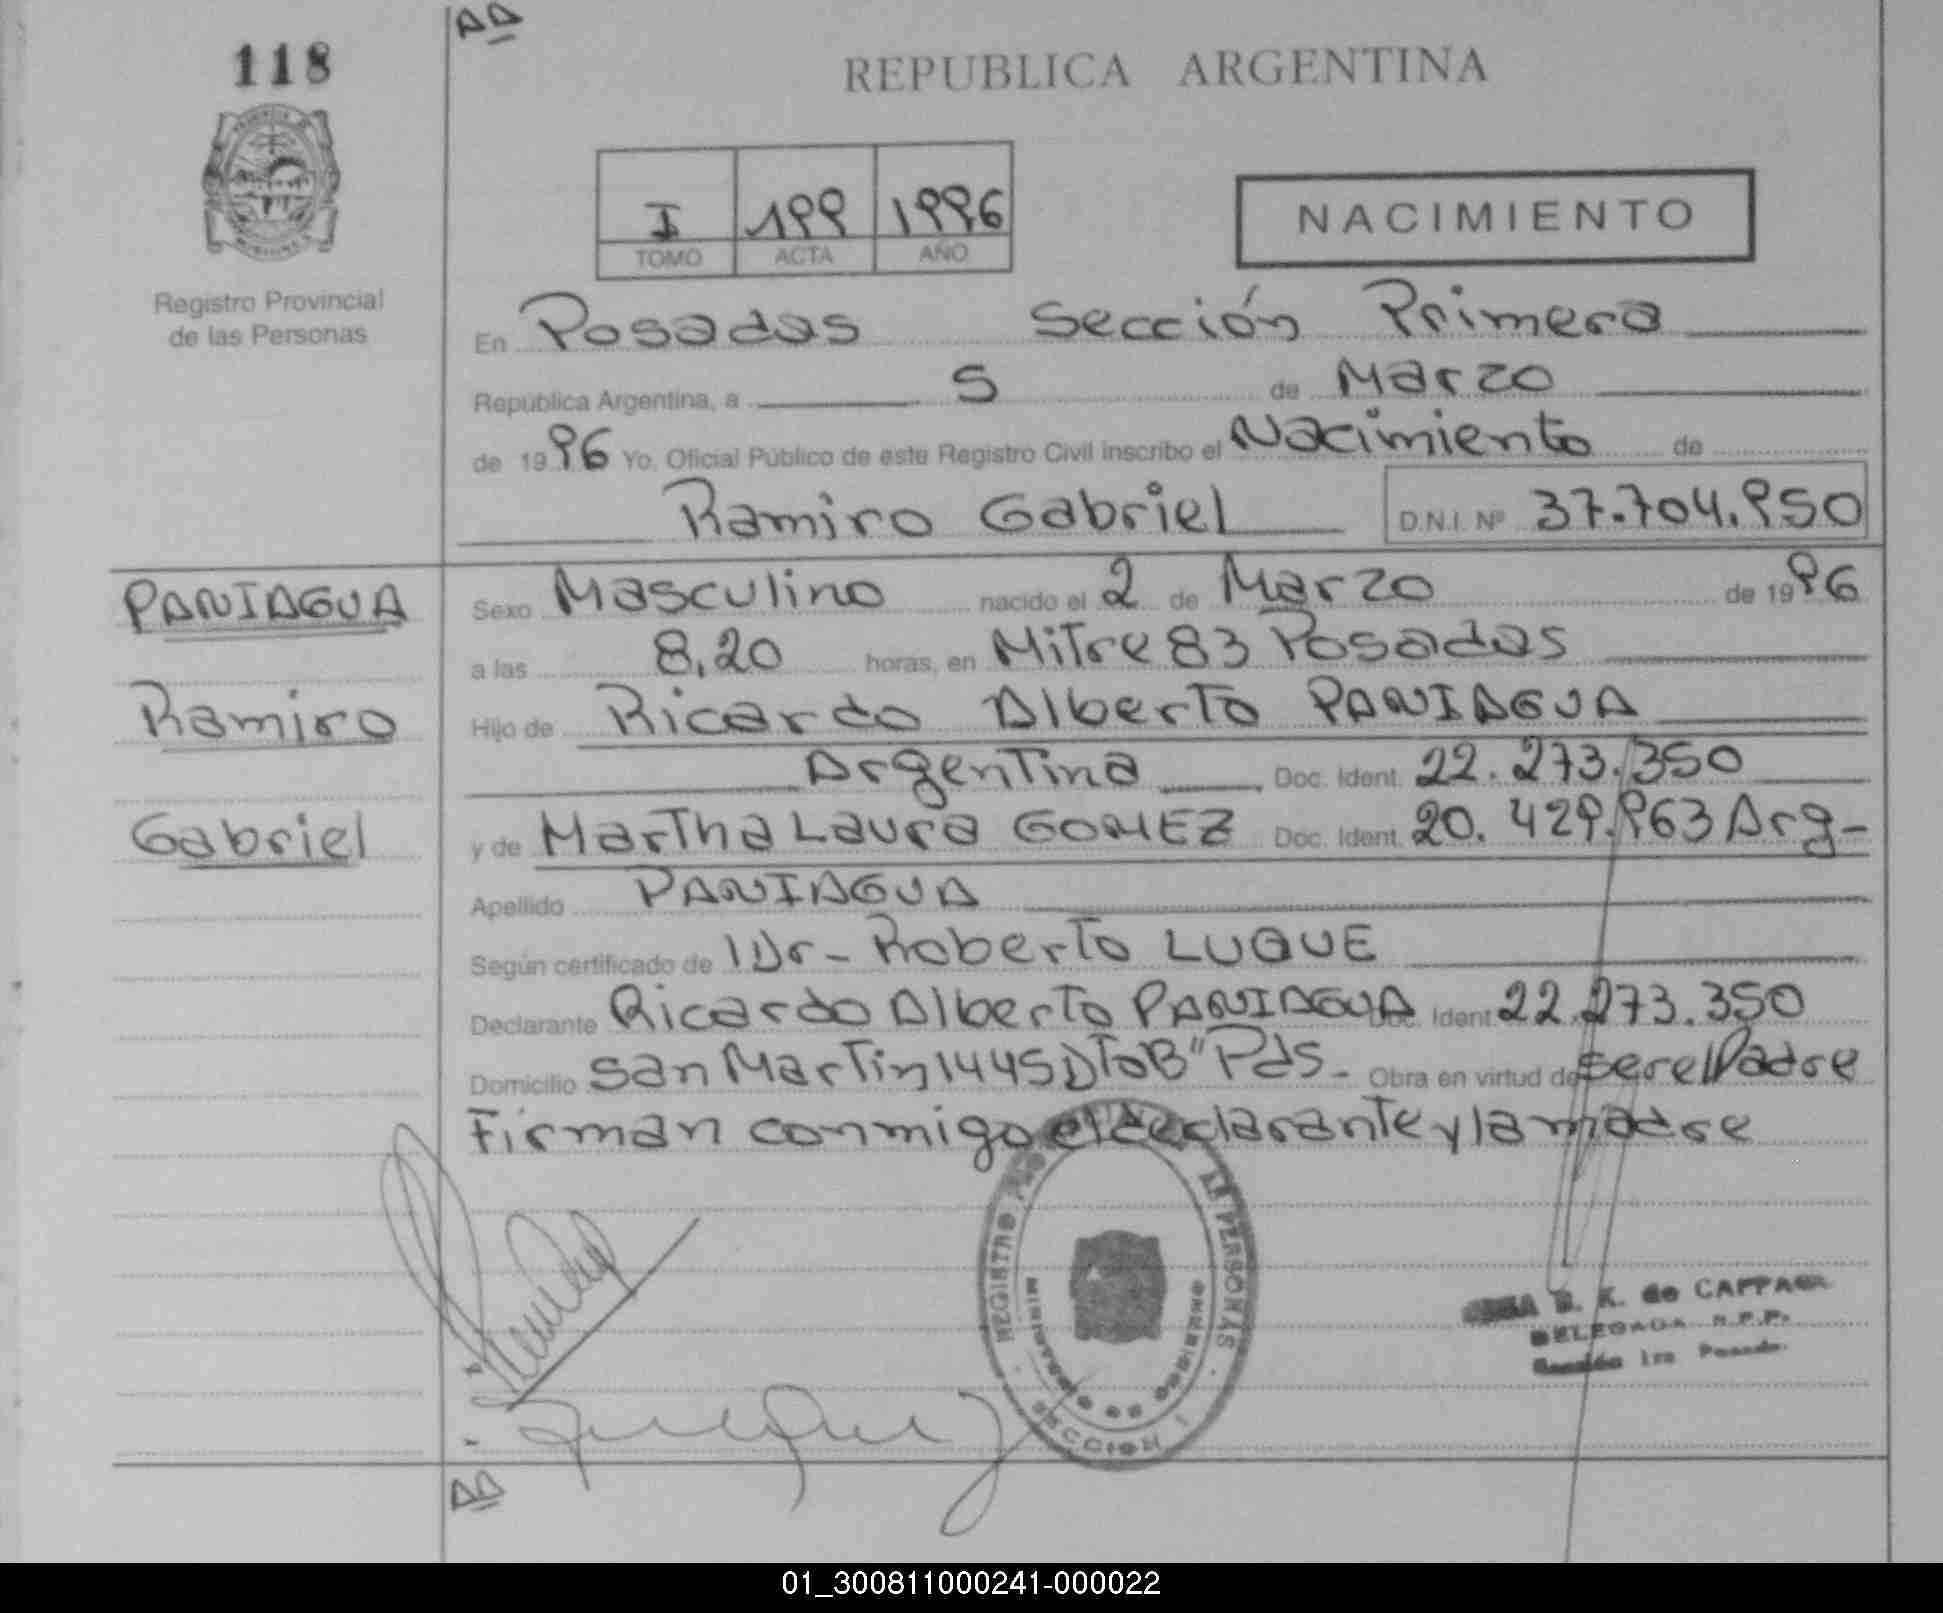 AA
118
REPUBLICA ARGENTINA
I 199 1996
TOMO ACTA AÑO
NACIMIENTO
Registro Provincial
de las Personas
En Posadas Sección Primera
República Argentina, a 5 de Marzo
de 1996 Yo, Oficial Público de este Registro Civil inscribo el Nacimiento de
Ramiro Gabriel D.N.I. Nº 37.704.950
PANIAGUA
Ramiro
Gabriel
Sexo Masculino nacido el 2 de Marzo de 1996
a las 8,20 horas, en Mitre 83 Posadas
Hijo de Ricardo Alberto PANIAGUA
Argentina Doc. Ident. 22.273.350
y de Martha Laura GOMEZ Doc. Ident. 20.429.963 Arg-
Apellido PANIAGUA
Según certificado de Dr- Roberto LUQUE
Declarante Ricardo Alberto PANIAGUA Doc. Ident. 22.273.350
Domicilio San Martin 1445 Dto B" Pds- Obra en virtud de ser el Padre
Firman conmigo el declarante y la madre
REGISTRO PERSONAS
MINISTERIO DE GOBIERNO
SECCION 1
B. K. de CAPPA
DELEGADA R.P.P.
Sección 1ra Posadas
AA
01_300811000241-000022